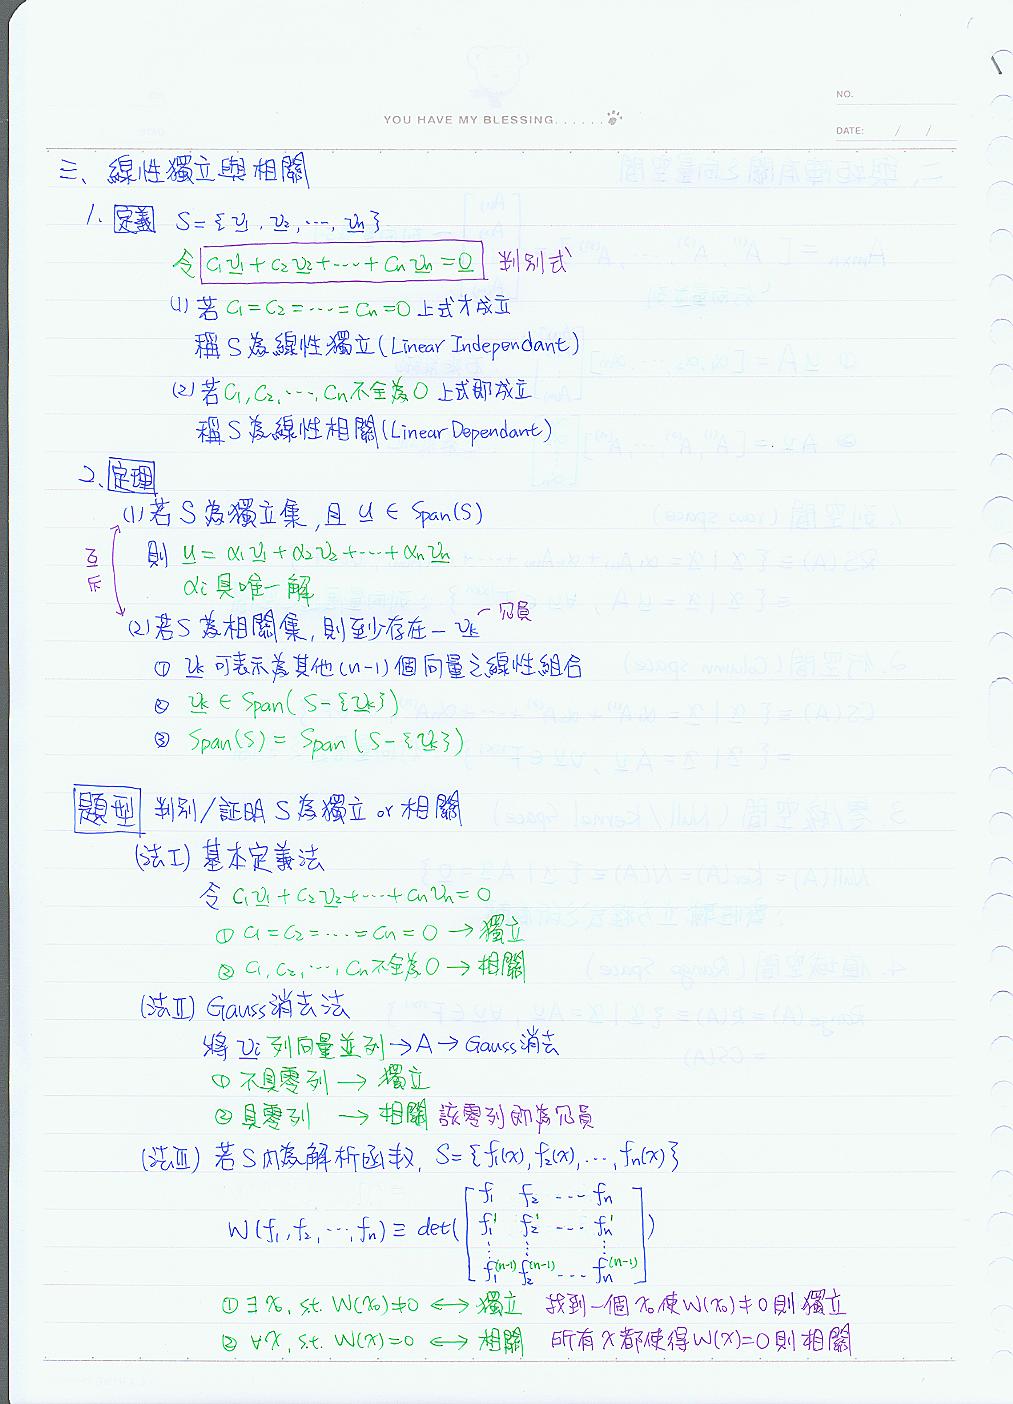 NO.
YOU HAVE MY BLESSING......
DATE: / /
三、線性獨立與相關
1. 定義 S={v1, v2, ..., vn}
令 c1v1+c2v2+...+cnvn=0 判別式
(1) 若 c1=c2=...=cn=0 上式才成立
稱S為線性獨立(Linear Independant)
(2) 若c1,c2,...,cn不全為0 上式即成立
稱S為線性相關(Linear Dependant)
2. 定理
(1) 若S為獨立集,且 u ∈ Span(S)
則 u = α1v1+α2v2+...+αnvn
αi 具唯一解
互斥
(2) 若S為相關集,則至少存在一vk 冗員
① vk 可表示為其他(n-1)個向量之線性組合
② vk ∈ Span(S-{vk})
③ Span(S) = Span(S-{vk})
題型 判別/証明 S為獨立 or 相關
(法I) 基本定義法
令 c1v1+c2v2+...+cnvn=0
① c1=c2=...=cn=0 → 獨立
② c1,c2,...,cn不全為0 → 相關
(法II) Gauss消去法
將 vi 列向量並列→A→Gauss消去
① 不具零列 → 獨立
② 具零列 → 相關 該零列即為冗員
(法III) 若S內為解析函数, S={f1(x),f2(x),...,fn(x)}
W(f1,f2,...,fn) ≡ det([
f1 f2 ... fn
f1' f2' ... fn'
⋮ ⋮ ⋮
f1^(n-1) f2^(n-1) ... fn^(n-1)
])
① ∃x0, s.t. W(x0)≠0 ↔ 獨立 找到一個x0使W(x0)≠0則獨立
② ∀x, s.t. W(x)=0 ↔ 相關 所有x都使得W(x)=0則相關